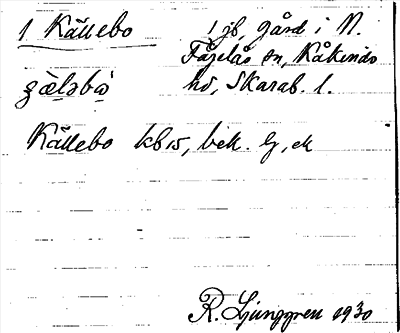 1 Källebo 1 jb, gård i N.
Fågelås sn, Kåkinds
hd, Skarab. l.
Källebo kb 15, bek. G, ek
R. Ljunggren 1930